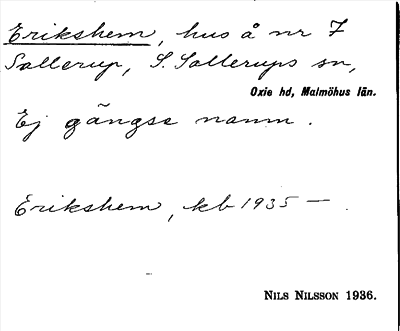 Erikshem, hus å nr 7
Sallerup, S. Sallerups sn,
Oxie hd, Malmöhus län.
Ej gängse namn.
Erikshem, kb 1935 —
NILS NILSSON 1936.